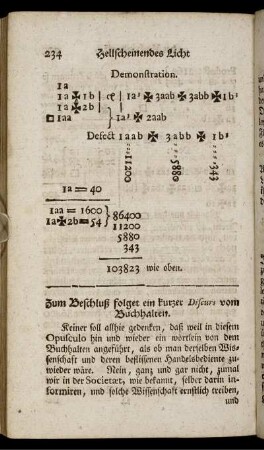 234 Hellscheinendes Licht
Demonstration.
1a
1a ✠ 1b | 1a³ ✠ 3aab ✠ 3abb ✠ 1b³
1a ✠ 2b
□ 1aa } 1a³ ✠ 2aab
Defect 1aab ✠ 3abb ✠ 1b³
11200 5880 343
1a = 40
1aa = 1600
1a ✠ 2b = 54
86400
11200
5880
343
103823 wie oben.
Zum Beschluß folget ein kurzer Discurs vom
Buchhalten.
Keiner soll allhie gedenken, daß weil in diesem
Opusculo hin und wieder ein wörtlein von dem
Buchhalten angeführt, als ob man derselben Wis=
senschaft und deren beflissenen Handelsbediente zu=
wieder wäre. Nein, ganz und gar nicht, zumal
wir in der Societæt, wie bekannt, selber darin in=
formiren, und solche Wissenschaft ernstlich treiben,
und